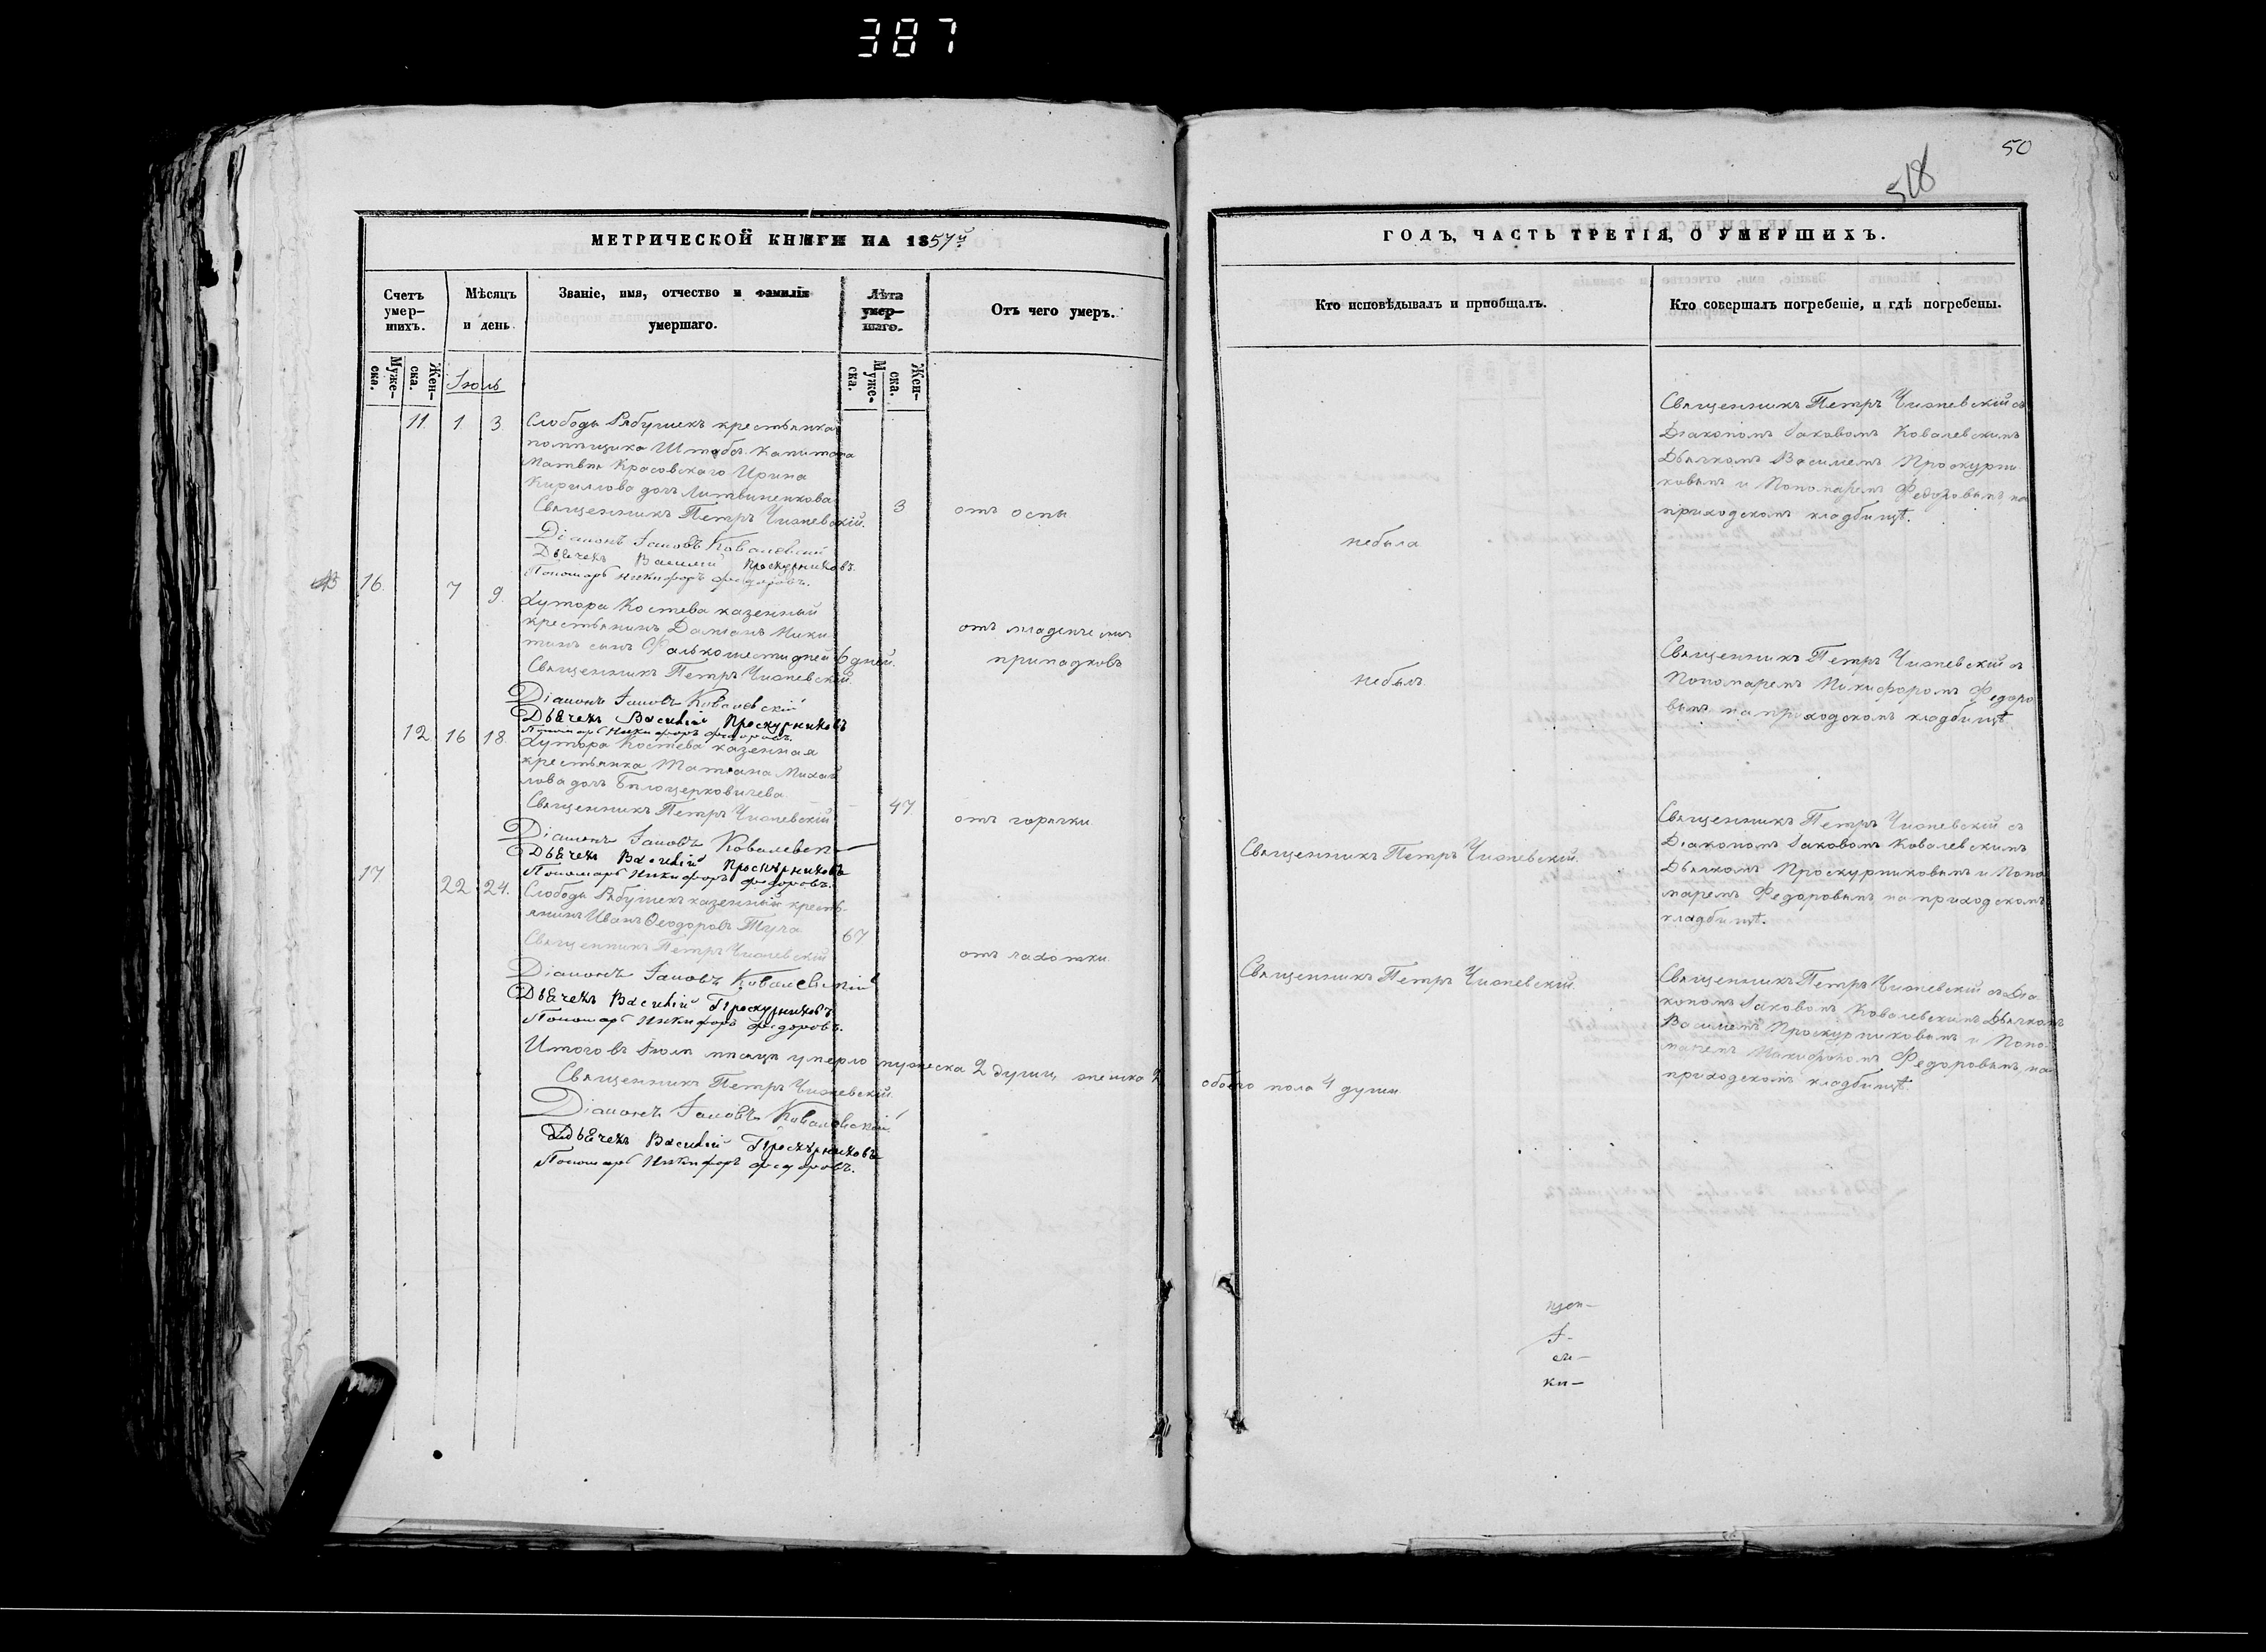 387
50
518
МЕТРИЧЕСКОЙ КНИГИ НА 1857й
Счетъ умер-шихъ.
Мѣсяцъ и день.
Званіе, имя, отчество и фамилія умершаго.
Лѣта умер-шаго.
Отъ чего умеръ.
Муже-ска.
Жен-ска.
Іюль
Муже-ска.
Жен-ска.
11 1 3
Слободы Рябушекъ крестьянка
помѣщика Штабсъ Капитана
Матвѣя Красовскаго Ирина
Кириллова дочь Литвиненкова
3
отъ оспы
Священникъ Петръ Чижевскій.
Діаконъ Іаковъ Ковалевскій
Дьячекъ Василій Проскурниковъ.
Пономарь Никифоръ Федоровъ.
16 7 9
Хутора Костева казенный
крестьянинъ Даміанъ Ники-
тинъ сынъ Фалько шести дней
6 дней.
отъ младенческихъ
припадковъ
Священникъ Петръ Чижевскій.
Діаконъ Іаковъ Ковалевскій
Дьячекъ Василій Проскурниковъ
Пономарь Никифоръ Федоровъ.
12 16 18
Хутора Костева казенная
крестьянка Татіана Михай
лова дочь Бѣлоцерковичева
47.
отъ горячки
Священникъ Петръ Чижевскій
Діаконъ Іаковъ Ковалевск
Дьячекъ Василій Проскурниковъ
Пономарь Никифоръ Федоровъ.
17 22 24.
Слободы Рябушекъ казенный кресть-
янинъ Иванъ Ѳеодоровъ Туча
67
отъ чахотки.
Священникъ Петръ Чижевскій
Діаконъ Іаковъ Ковалевскій
Дьячекъ Василій Проскурниковъ
Пономарь Никифоръ Федоровъ.
Итого въ Іюлѣ мѣсяцѣ умерло мужеска 2 души, женска 2
Священникъ Петръ Чижевскій.
Діаконъ Іаковъ Ковалевскій
Дьячекъ Василій Проскурниковъ
Пономарь Никифоръ Федоровъ.
ГОДЪ, ЧАСТЬ ТРЕТІЯ, О УМЕРШИХЪ.
Кто исповѣдывалъ и пріобщалъ.
Кто совершалъ погребеніе, и гдѣ погребены.
Священникъ Петръ Чижевскій съ
Діакономъ Іаковомъ Ковалевскимъ
Дьячкомъ Василіемъ Проскурни-
ковымъ и Пономаремъ Федоровымъ на
приходскомъ кладбищѣ.
небыла
Священникъ Петръ Чижевскій съ
Пономаремъ Никифоромъ Федоро
вымъ на приходскомъ кладбищѣ
небылъ
Священникъ Петръ Чижевскій съ
Діакономъ Іаковомъ Ковалевскимъ
Дьячкомъ Проскурниковымъ и Поно
маремъ Федоровымъ на приходскомъ
кладбищѣ.
Священникъ Петръ Чижевскій
Священникъ Петръ Чижевскій съ Діа-
кономъ Іаковомъ Ковалевскимъ Дьячкомъ
Василіемъ Проскурниковымъ и Поно-
маремъ Никифоромъ Федоровымъ на
приходскомъ кладбищѣ.
Священникъ Петръ Чижевскій
обоего пола 4 души
щен-
І-
ки-